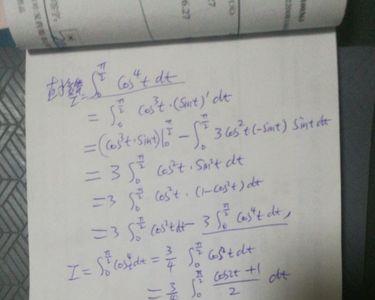 直接算
I = ∫₀^{π/2} cos⁴t dt
= ∫₀^{π/2} cos³t · (sint)' dt
= (cos³t · sint)|₀^{π/2} − ∫₀^{π/2} 3cos²t(−sint) sint dt
= 3 ∫₀^{π/2} cos²t · sin²t dt
= 3 ∫₀^{π/2} cos²t · (1−cos²t) dt
= 3 ∫₀^{π/2} cos²t dt − 3 ∫₀^{π/2} cos⁴t dt,
I = ∫₀^{π/2} cos⁴t dt = 3/4 ∫₀^{π/2} cos²t dt
= 3/4 ∫₀^{π/2} (cos2t + 1)/2 dt